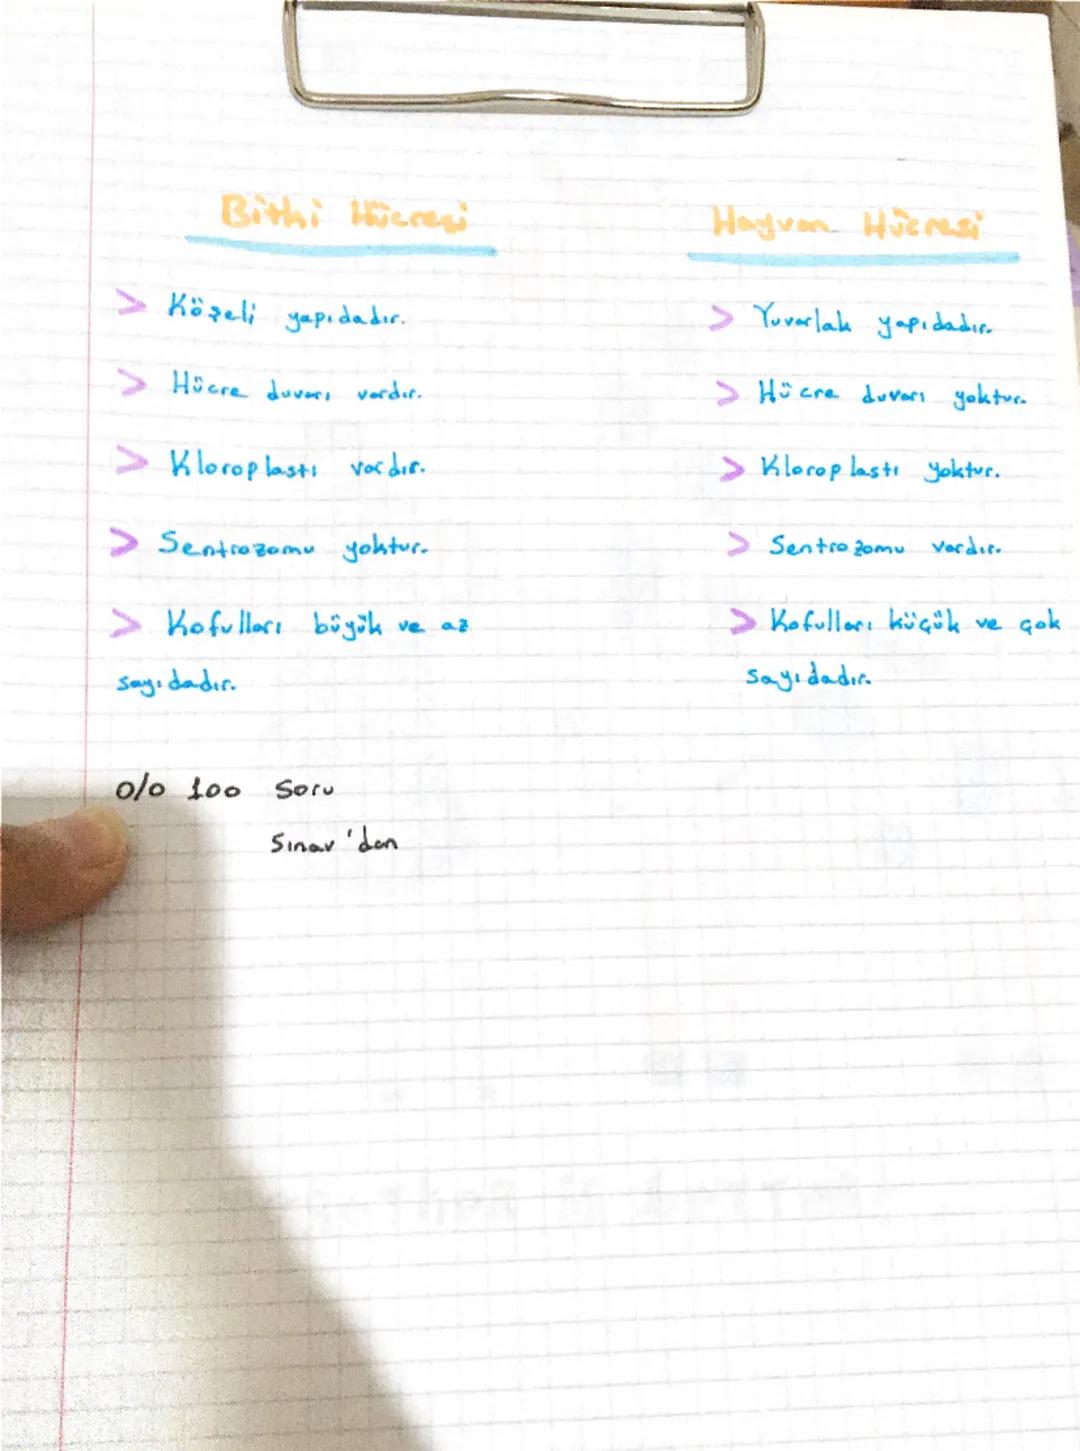 Bitki Hücresi
Hayvan Hücresi
> Köşeli yapıdadır.
> Yuvarlak yapıdadır.
> Hücre duvarı vardır.
> Hücre duvarı yoktur.
> Kloroplastı vardır.
> Kloroplastı yoktur.
> Sentrozomu yoktur.
> Sentrozomu vardır.
> Kofulları büyük ve az
sayıdadır.
> Kofulları küçük ve çok
sayıdadır.
0/0 100 Soru
Sınav'dan